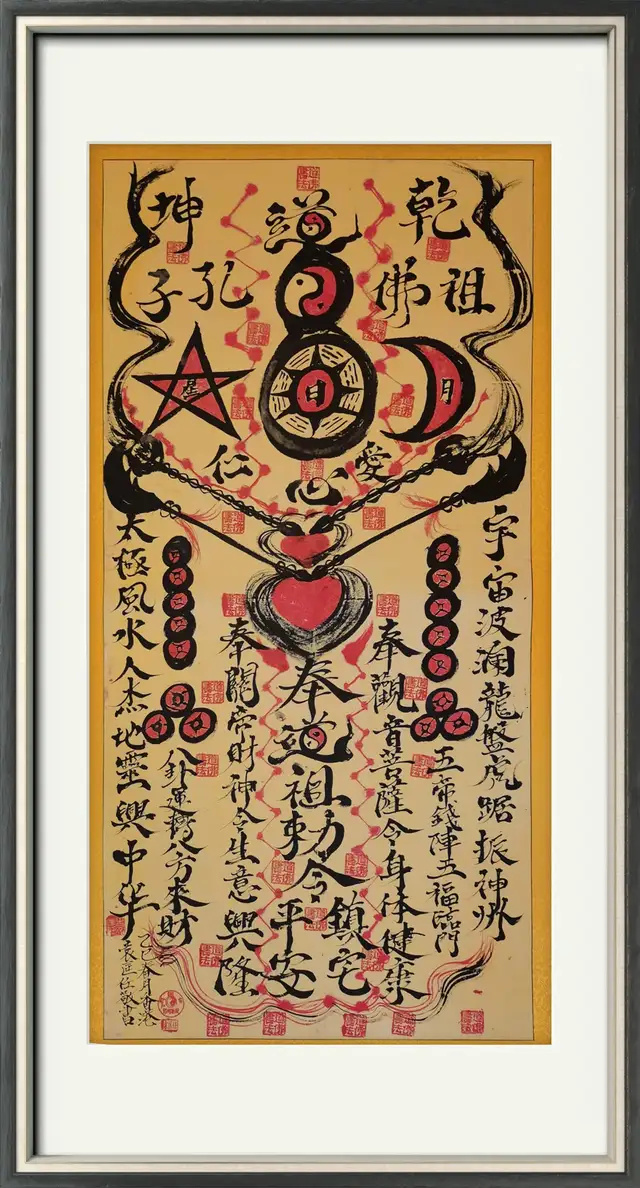 乾
道
坤
祖
佛
孔
子
月
日
星
愛
心
仁
宇宙波瀾龍盤虎踞振神州
五帝錢陣五福臨門
奉觀音菩薩令身体健康
奉道祖勅令
鎮宅
平安
奉關帝財神令生意興隆
八卦運轉八方來財
太極風水人杰地靈興中华
乙巳春月香港
袁延任敬書